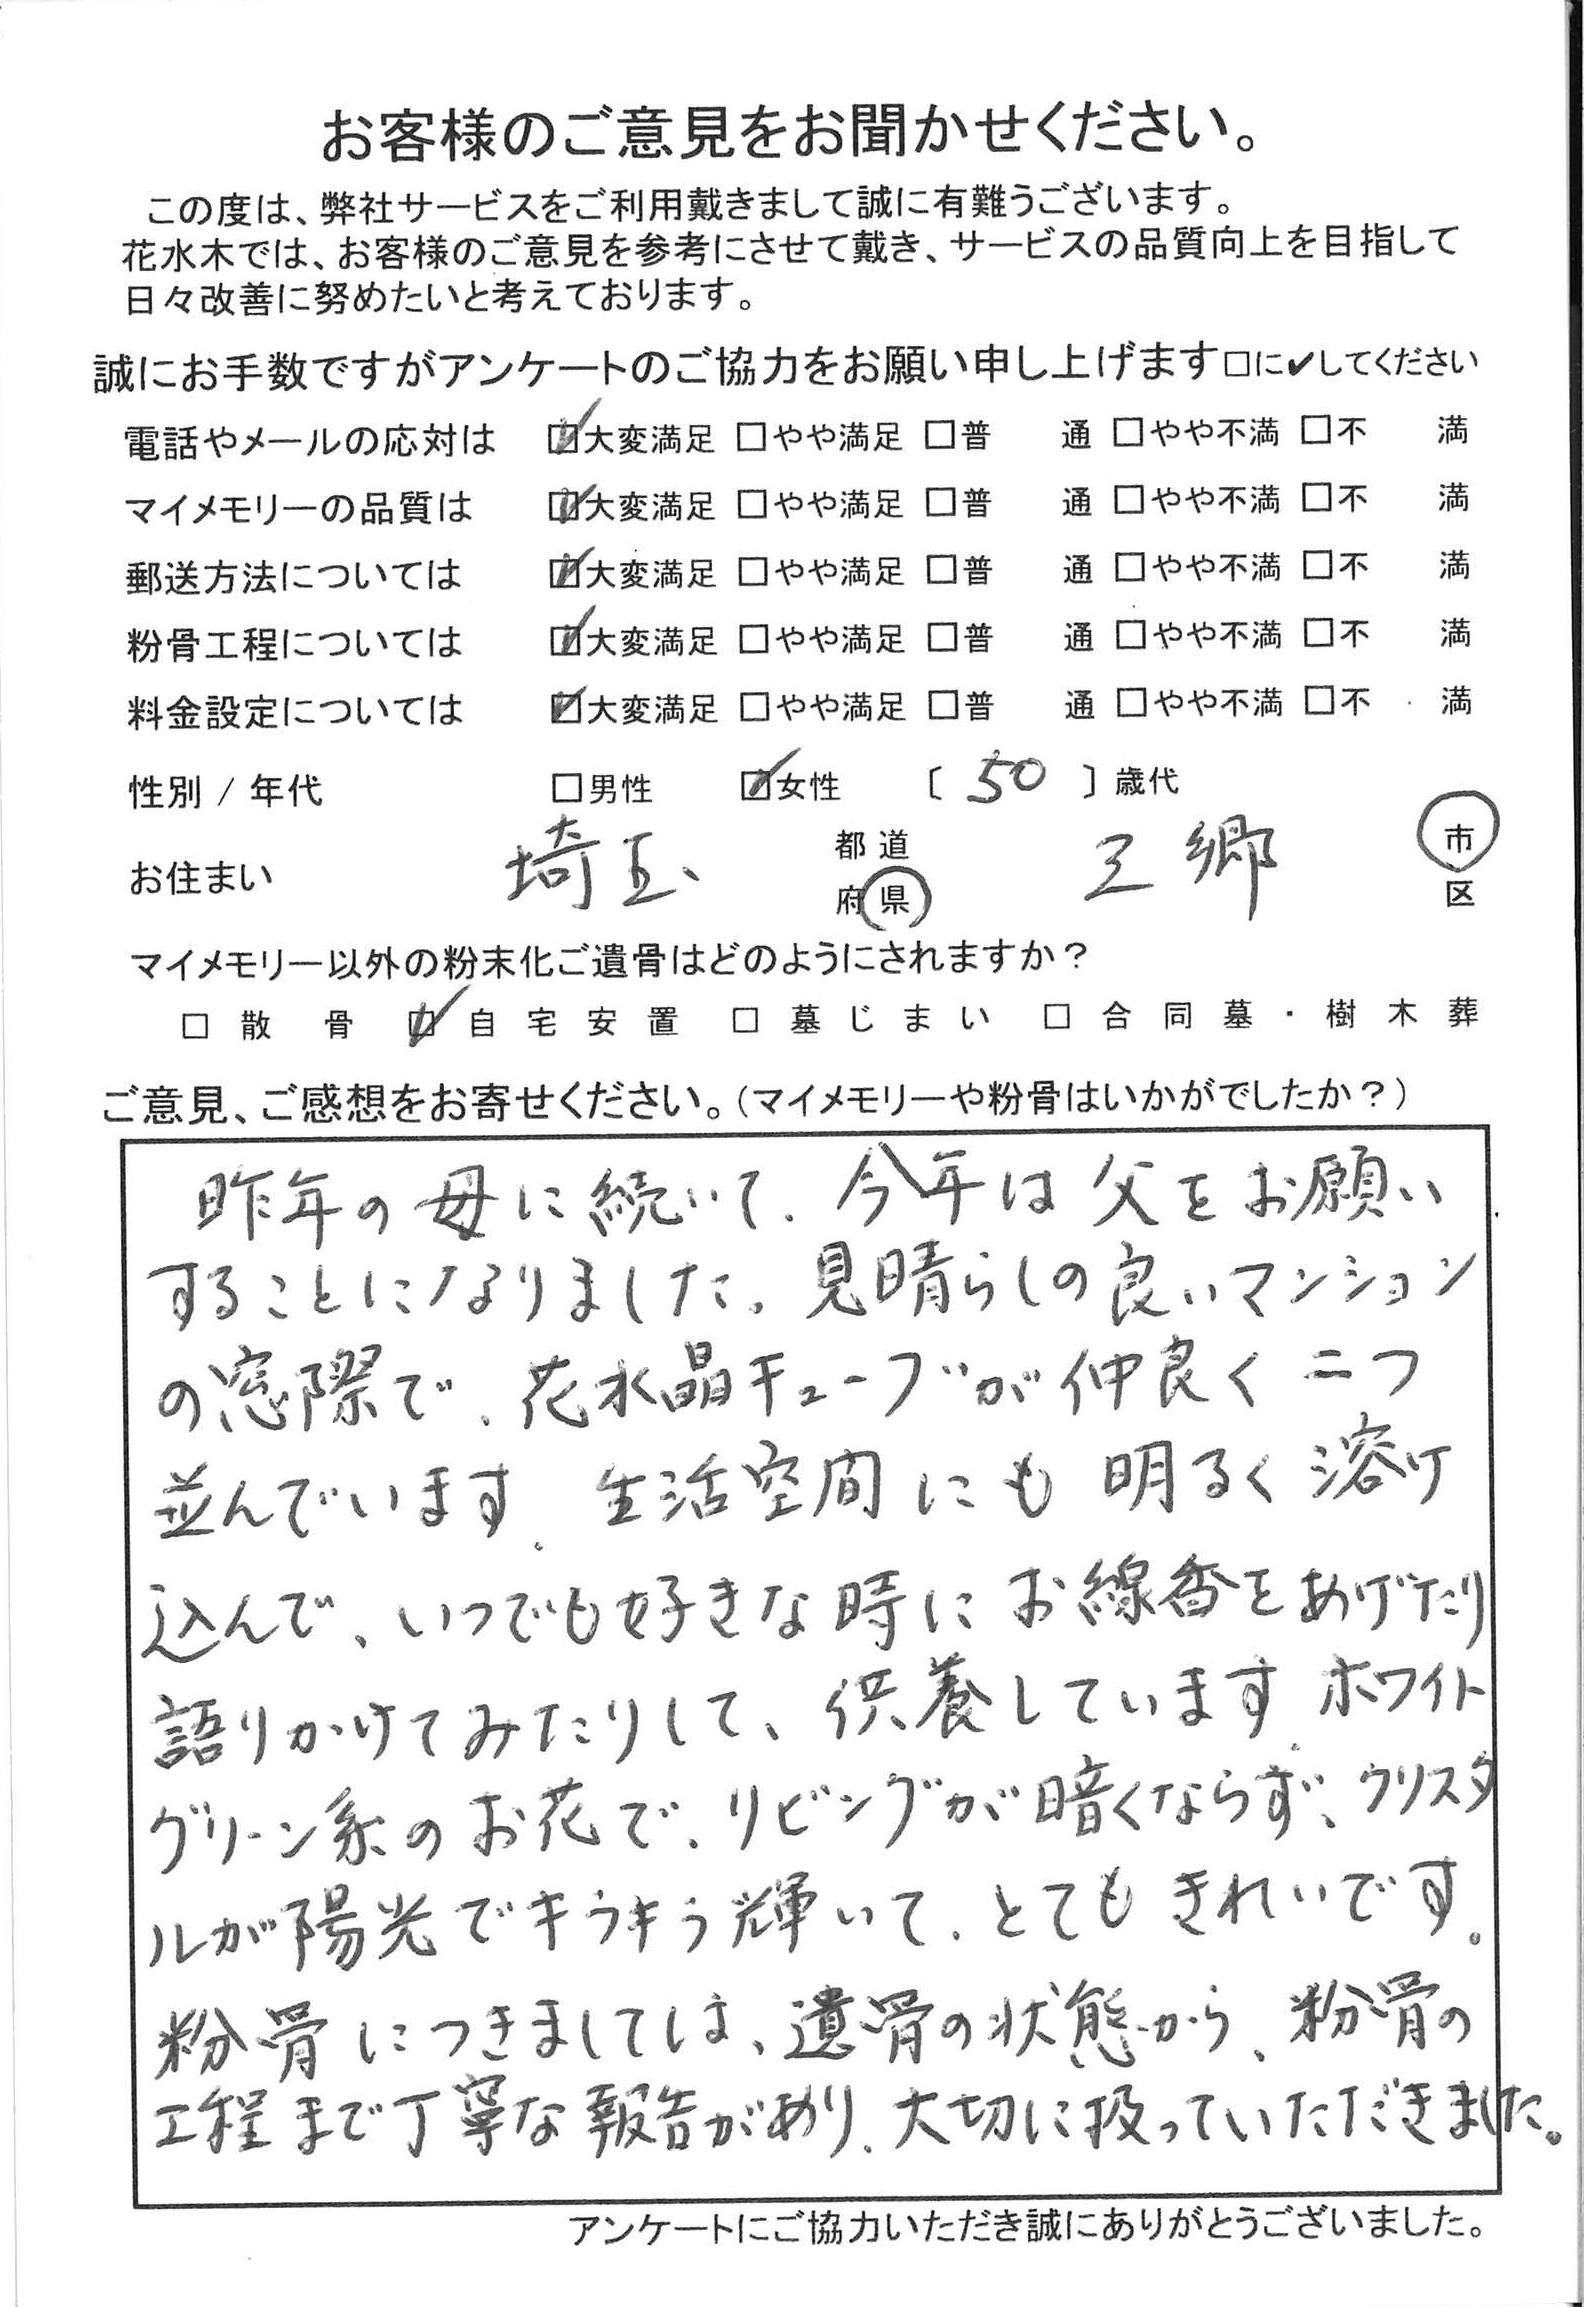 お客様のご意見をお聞かせください。
この度は、弊社サービスをご利用戴きまして誠に有難うございます。
花水木では、お客様のご意見を参考にさせて戴き、サービスの品質向上を目指して
日々改善に努めたいと考えております。
誠にお手数ですがアンケートのご協力をお願い申し上げます□に✔してください
電話やメールの応対は ☑大変満足 □やや満足 □普 通 □やや不満 □不 満
マイメモリーの品質は ☑大変満足 □やや満足 □普 通 □やや不満 □不 満
郵送方法については ☑大変満足 □やや満足 □普 通 □やや不満 □不 満
粉骨工程については ☑大変満足 □やや満足 □普 通 □やや不満 □不 満
料金設定については ☑大変満足 □やや満足 □普 通 □やや不満 □不 満
性別 / 年代 □男性 ☑女性 〔 50 〕歳代
お住まい 埼玉 都道府県 三郷 市区
マイメモリー以外の粉末化ご遺骨はどのようにされますか？
□ 散骨 ☑ 自宅安置 □ 墓じまい □ 合同墓・樹木葬
ご意見、ご感想をお寄せください。（マイメモリーや粉骨はいかがでしたか？）
昨年の母に続いて、今年は父をお願い
することになりました。見晴らしの良いマンション
の窓際で、花水晶チューブが仲良く二つ
並んでいます。生活空間にも明るく溶け
込んで、いつでも好きな時にお線香をあげたり
語りかけてみたりして、供養しています。ホワイト
グリーン系のお花で、リビングが暗くならず、クリスタ
ルが陽光でキラキラ輝いて、とてもきれいです。
粉骨につきましては、遺骨の状態から、粉骨の
工程まで丁寧な報告があり、大切に扱っていただきました。
アンケートにご協力いただき誠にありがとうございました。